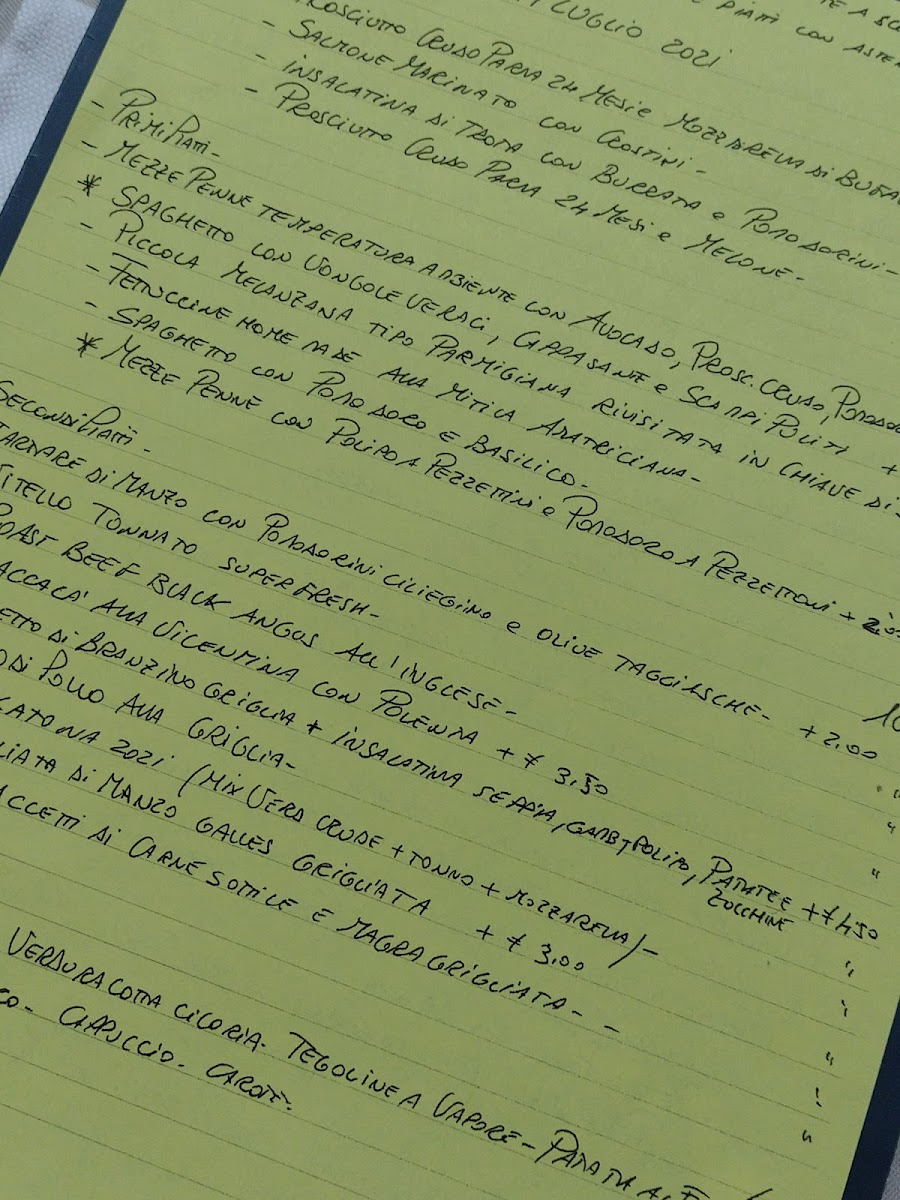 TE A SC
PIATTI CON ASTE
LUGLIO 2021
PROSCIUTTO CRUDO PARMA 24 MESI E MOZZARELLA DI BUFA
- SALMONE MARINATO CON CROSTINI -
- INSALATINA DI TROTA CON BURRATA E POMODORINI -
- PROSCIUTTO CRUDO PARMA 24 MESI E MELONE -
- PRIMI PIATTI -
- MEZZE PENNE TEMPERATURA AMBIENTE CON AVOCADO, PROSC. CRUDO, POMODOR
* SPAGHETTO CON VONGOLE VERACI, CAPPASANTE E SCAMPI PULITI +
- PICCOLA MELANZANA TIPO PARMIGIANA RIVISITATA IN CHIAVE DI
- FETTUCCINE HOME MADE ALLA MITICA AMATRICIANA -
- SPAGHETTO CON POMODORO E BASILICO -
* MEZZE PENNE CON POLIPO A PEZZETTINI E POMODORO A PEZZETTONI + 2.00
SECONDI PIATTI -
TARTARE DI MANZO CON POMODORINI CILIEGINO E OLIVE TAGGIASCHE - + 2.00 10
VITELLO TONNATO SUPER FRESH - "
ROAST BEEF BLACK ANGUS ALL'INGLESE - "
BACCALA' ALLA VICENTINA CON POLENTA + € 3.50 "
ETTO DI BRANZINO GRIGLIA + INSALATINA SEPPIA, GAMB, POLIPO, PATATE E ZUCCHINE + € 4.50
O DI POLLO ALLA GRIGLIA - "
CATONA 2021 (MIX VERD CRUDE + TONNO + MOZZARELLA) - "
LIATA DI MANZO GALLES GRIGLIATA + € 3.00 "
ACCETTI DI CARNE SOTTILE E MAGRA GRIGLIATA - - "
VERDURA COTTA CICORIA - TEGOLINE A VAPORE - PATATA AL F
CO - CAPUCCIO - CAROTE.